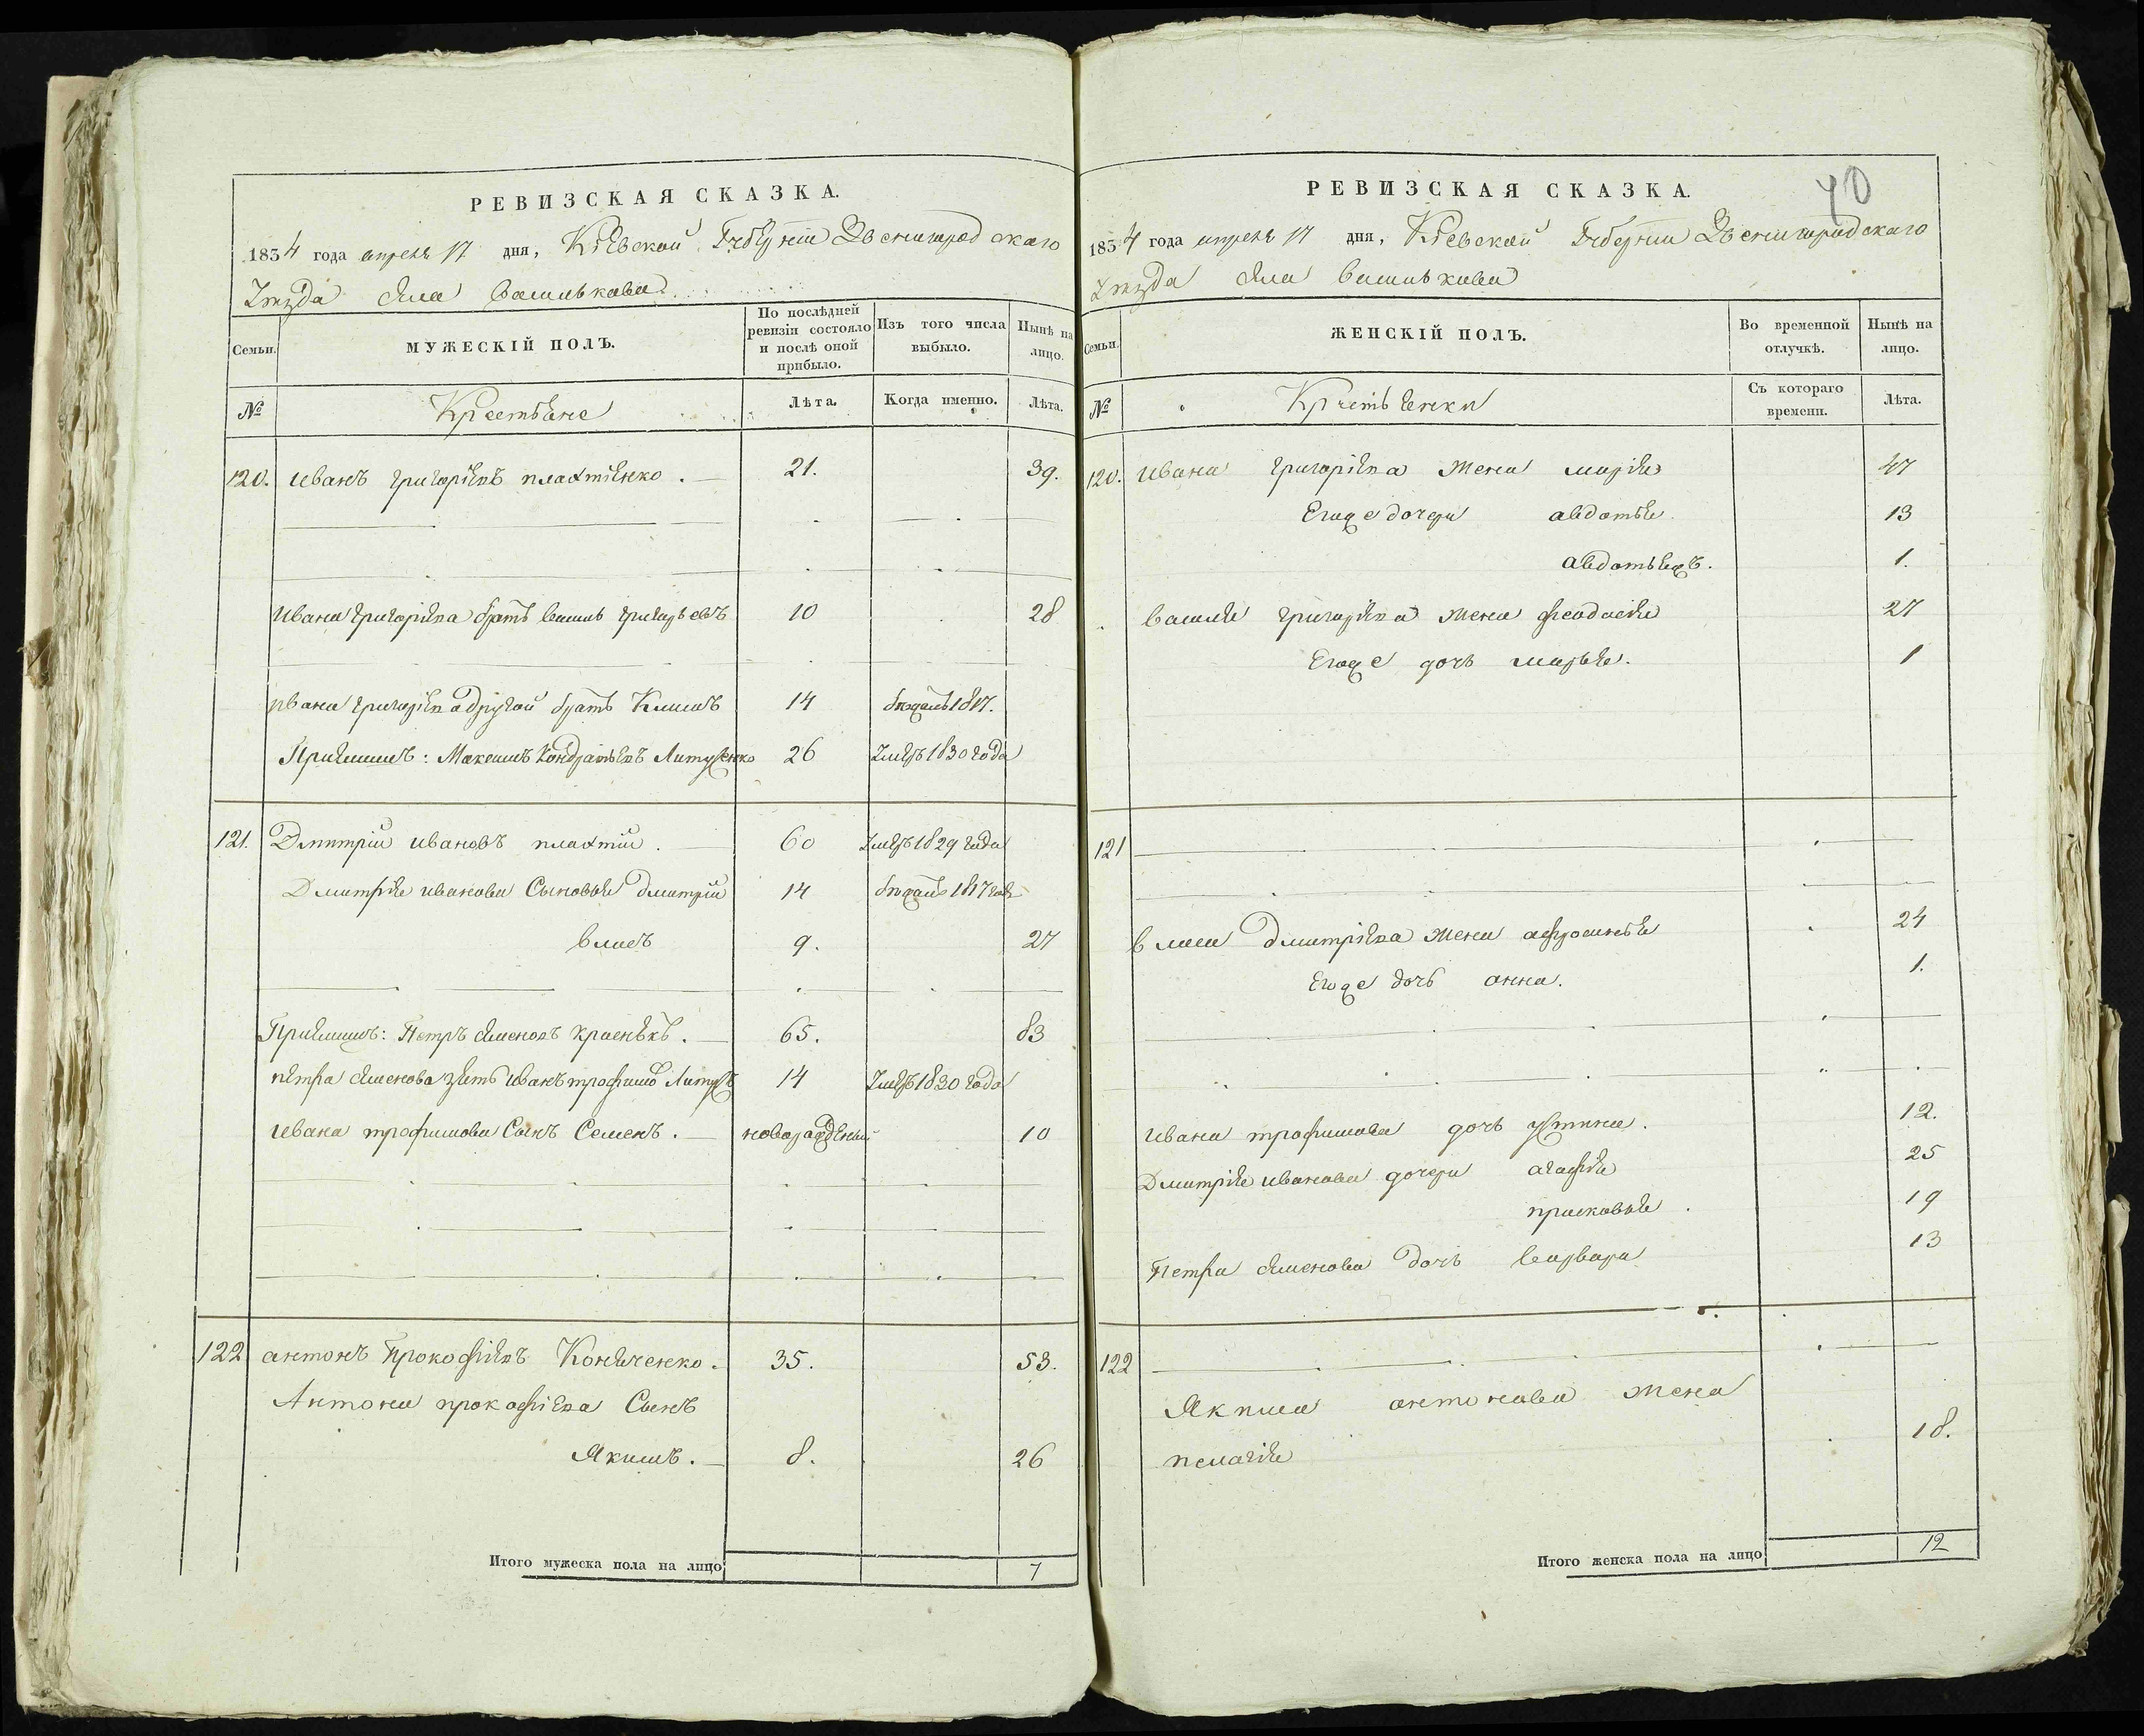 РЕВИЗСКАЯ СКАЗКА.
1834 года апреля 17 дня, Кіевской Губерніи Звенигородскаго
Уезда Села Василькова
Семьи.
МУЖЕСКІЙ ПОЛЪ.
По послѣдней ревизіи состояло и послѣ оной прибыло.
Изъ того числа выбыло.
Нынѣ на лицо.
№
Крестьяне
Лѣта.
Когда именно.
Лѣта.
120. Иванъ григоріевъ плахтіенко. 21. 39.
Ивана григоріева братъ василь григорьевъ 10 28
Ивана григоріева другой братъ Климъ 14 1817.
Приимышъ: Максимъ Кондратьевъ Литу 26 Умеръ 1830 года
121. Дмитрій ивановъ плахтій. 60 Умеръ 1829 года
Дмитрія иванова Сыновья дмитрій 14 1817
власъ 9. 27
Приимышъ: Петръ Семеновъ 65. 83
петра Семенова зять иванъ трофимо 14 Умеръ 1830 года
ивана трофимова Сынъ Семенъ. новорожденый 10
122 антонъ Прокофіевъ Коняченко. 35. 53.
Антона прокофіева Сынъ
Якимъ. 8. 26
Итого мужеска пола на лицо 7
РЕВИЗСКАЯ СКАЗКА.
40
1834 года апреля 17 дня, Кіевской Губерніи Звенигородскаго
Уезда Села Василькова
Семьи.
ЖЕНСКІЙ ПОЛЪ.
Во временной отлучкѣ.
Нынѣ на лицо.
№
Крестьянки
Съ котораго времени.
Лѣта.
120. Ивана григоріева жена марія 47
Егоже дочери авдотья 13
1.
василя григоріева жена феодосія 27
Егоже дочь марья. 1
121
власа дмитріева жена афросинья 24
Егоже дочь анна. 1.
ивана трофимова дочь устина. 12.
Дмитрія иванова дочери агафія 25
прасковья. 19
Петра Семенова дочь варвара 13
122
Якима антонова жена
пелагія 18.
Итого женска пола на лицо 12